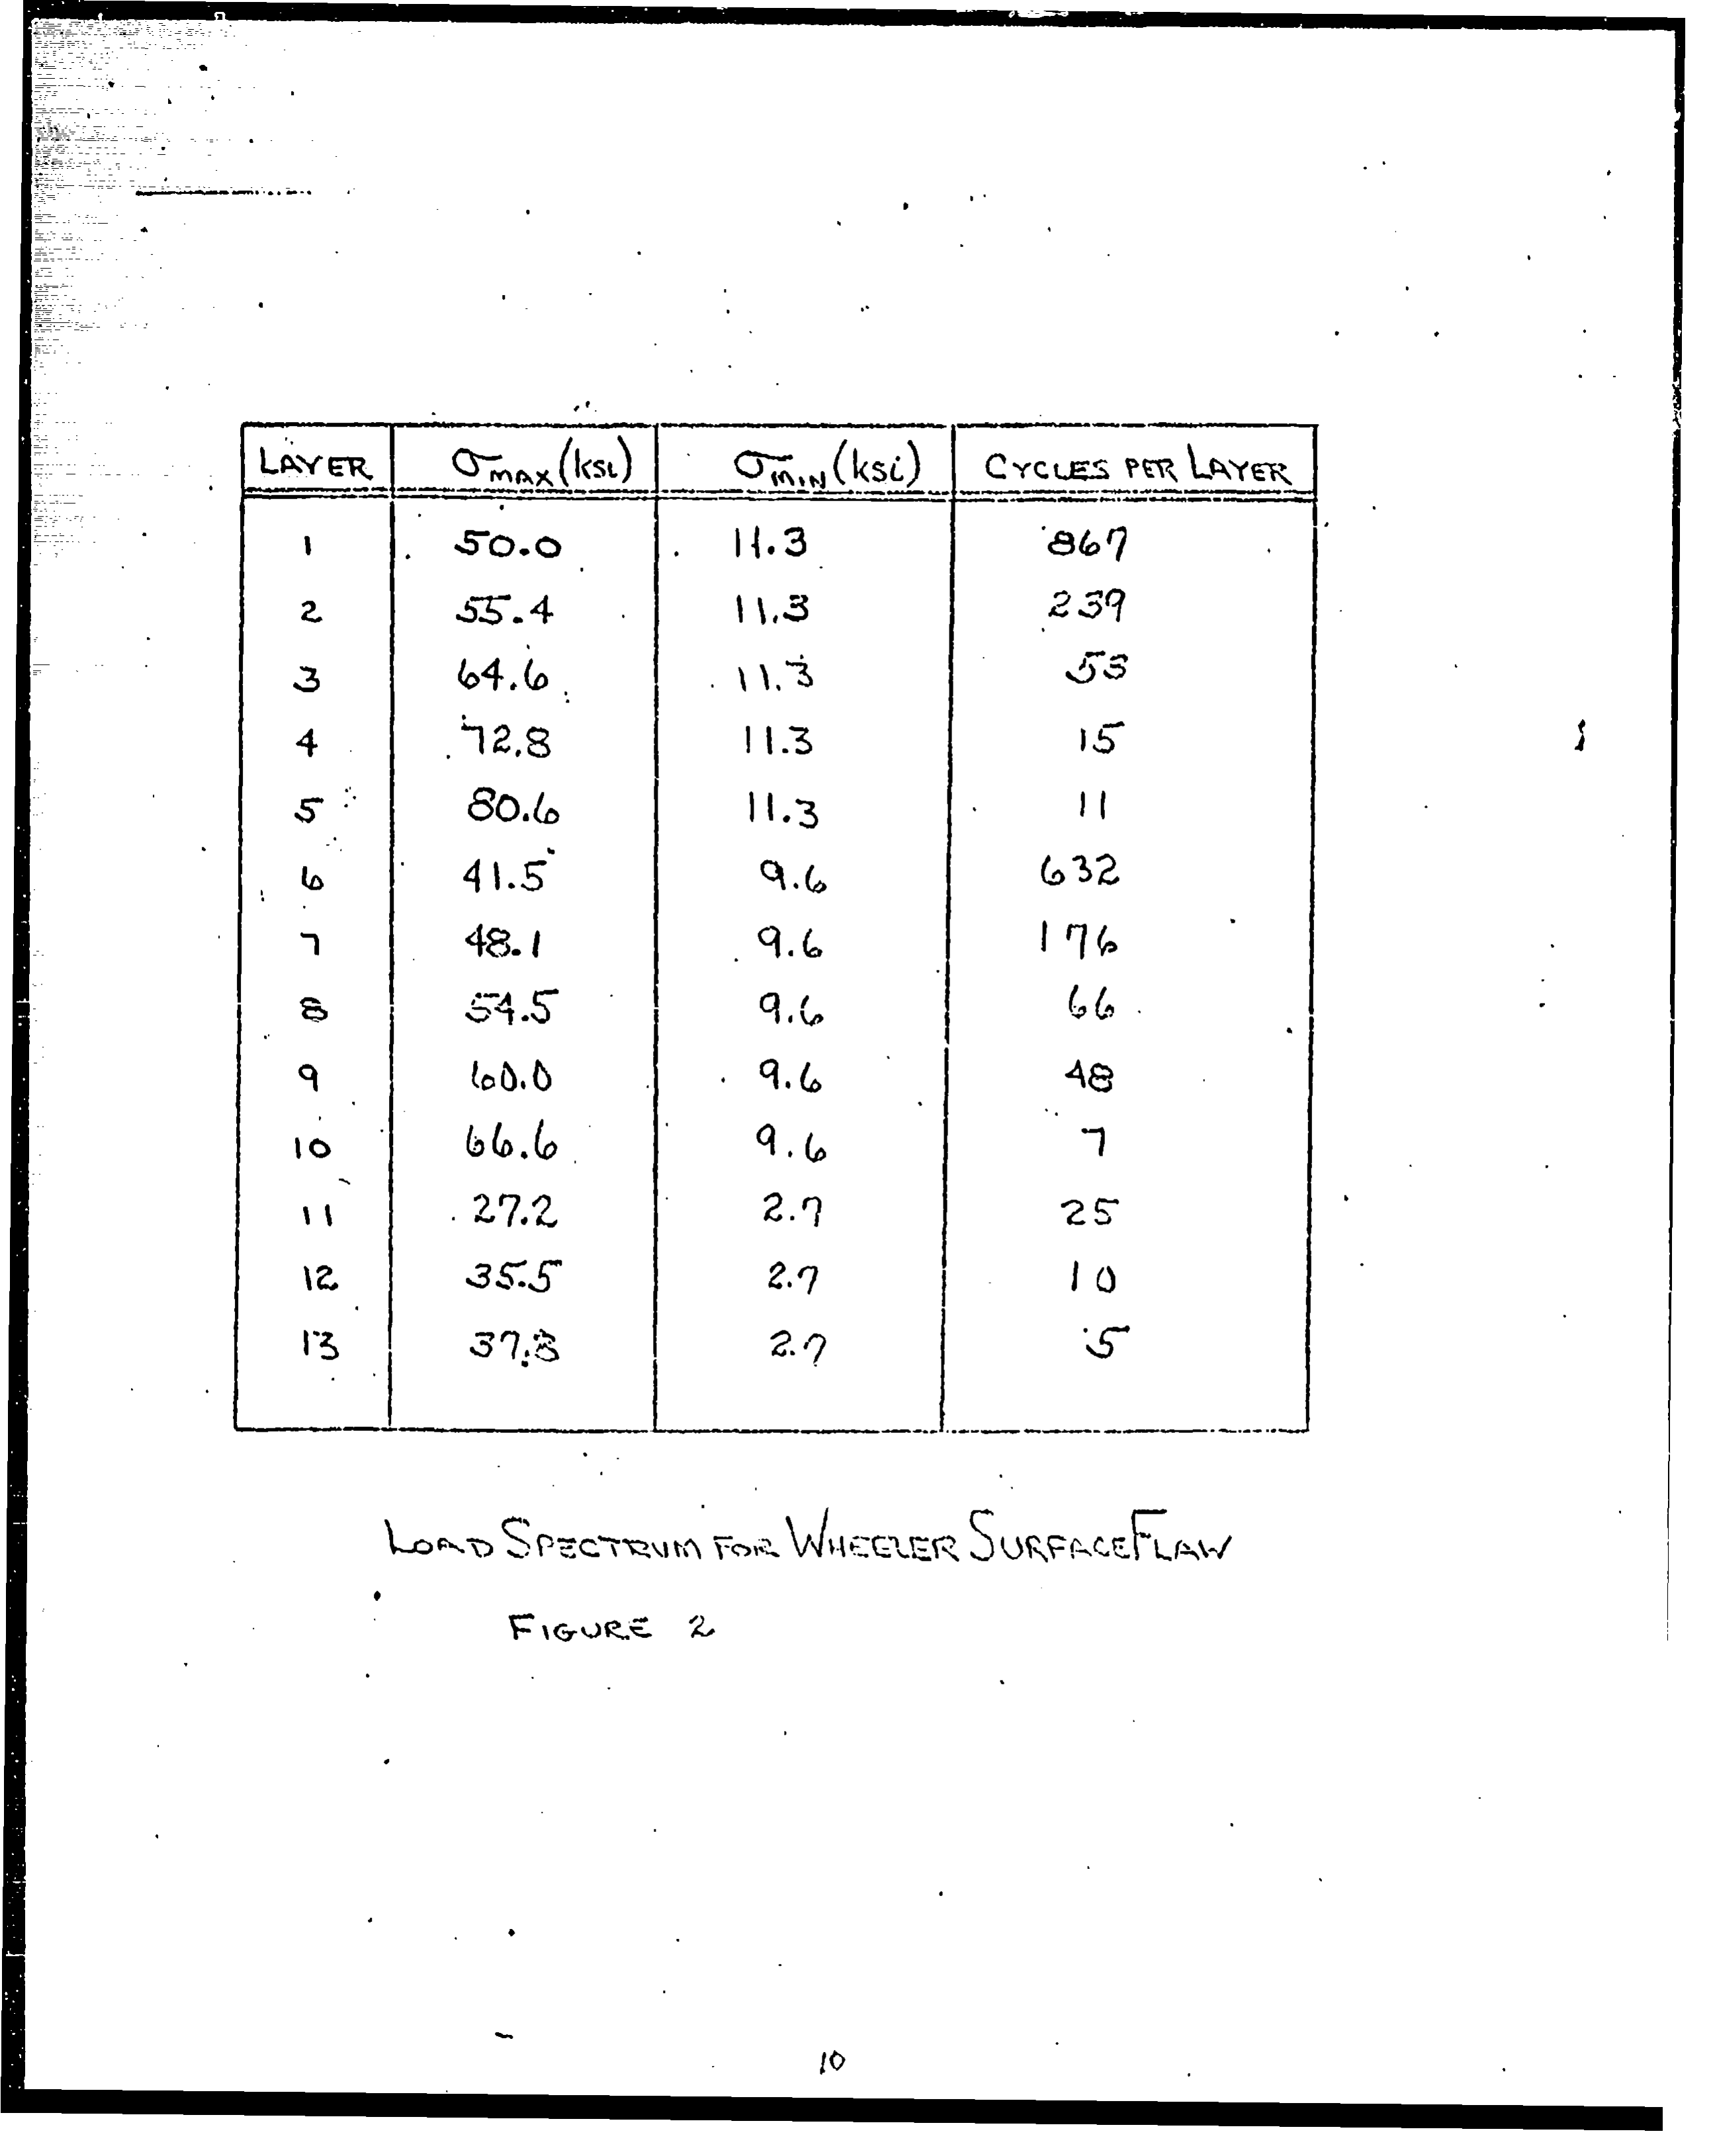 LAYER σMAX (ksi) σMIN (ksi) CYCLES PER LAYER
1 50.0 11.3 867
2 55.4 11.3 239
3 64.6 11.3 53
4 72.8 11.3 15
5 80.6 11.3 11
6 41.5 9.6 632
7 48.1 9.6 176
8 54.5 9.6 66
9 60.0 9.6 48
10 66.6 9.6 7
11 27.2 2.7 25
12 35.5 2.7 10
13 2.7 5
LOAD SPECTRUM FOR WHEELER SURFACE FLAW
FIGURE 2
10